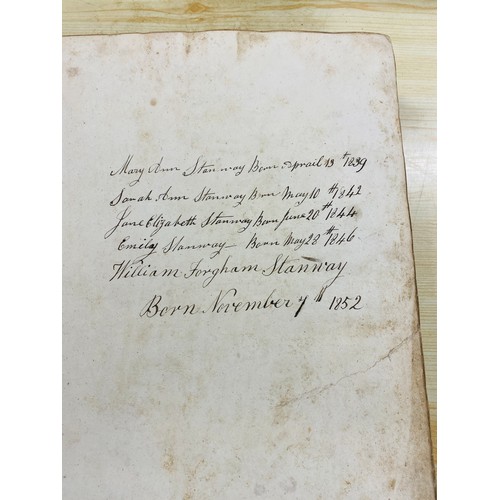 Mary Ann Stanway Born Aprail 13th 1839
Sarah Ann Stanway Born May 10th 1842
Jane Elizabeth Stanway Born June 20th 1844
Emily Stanway Born May 28th 1846
William Forgham Stanway
Born November 7th 1852